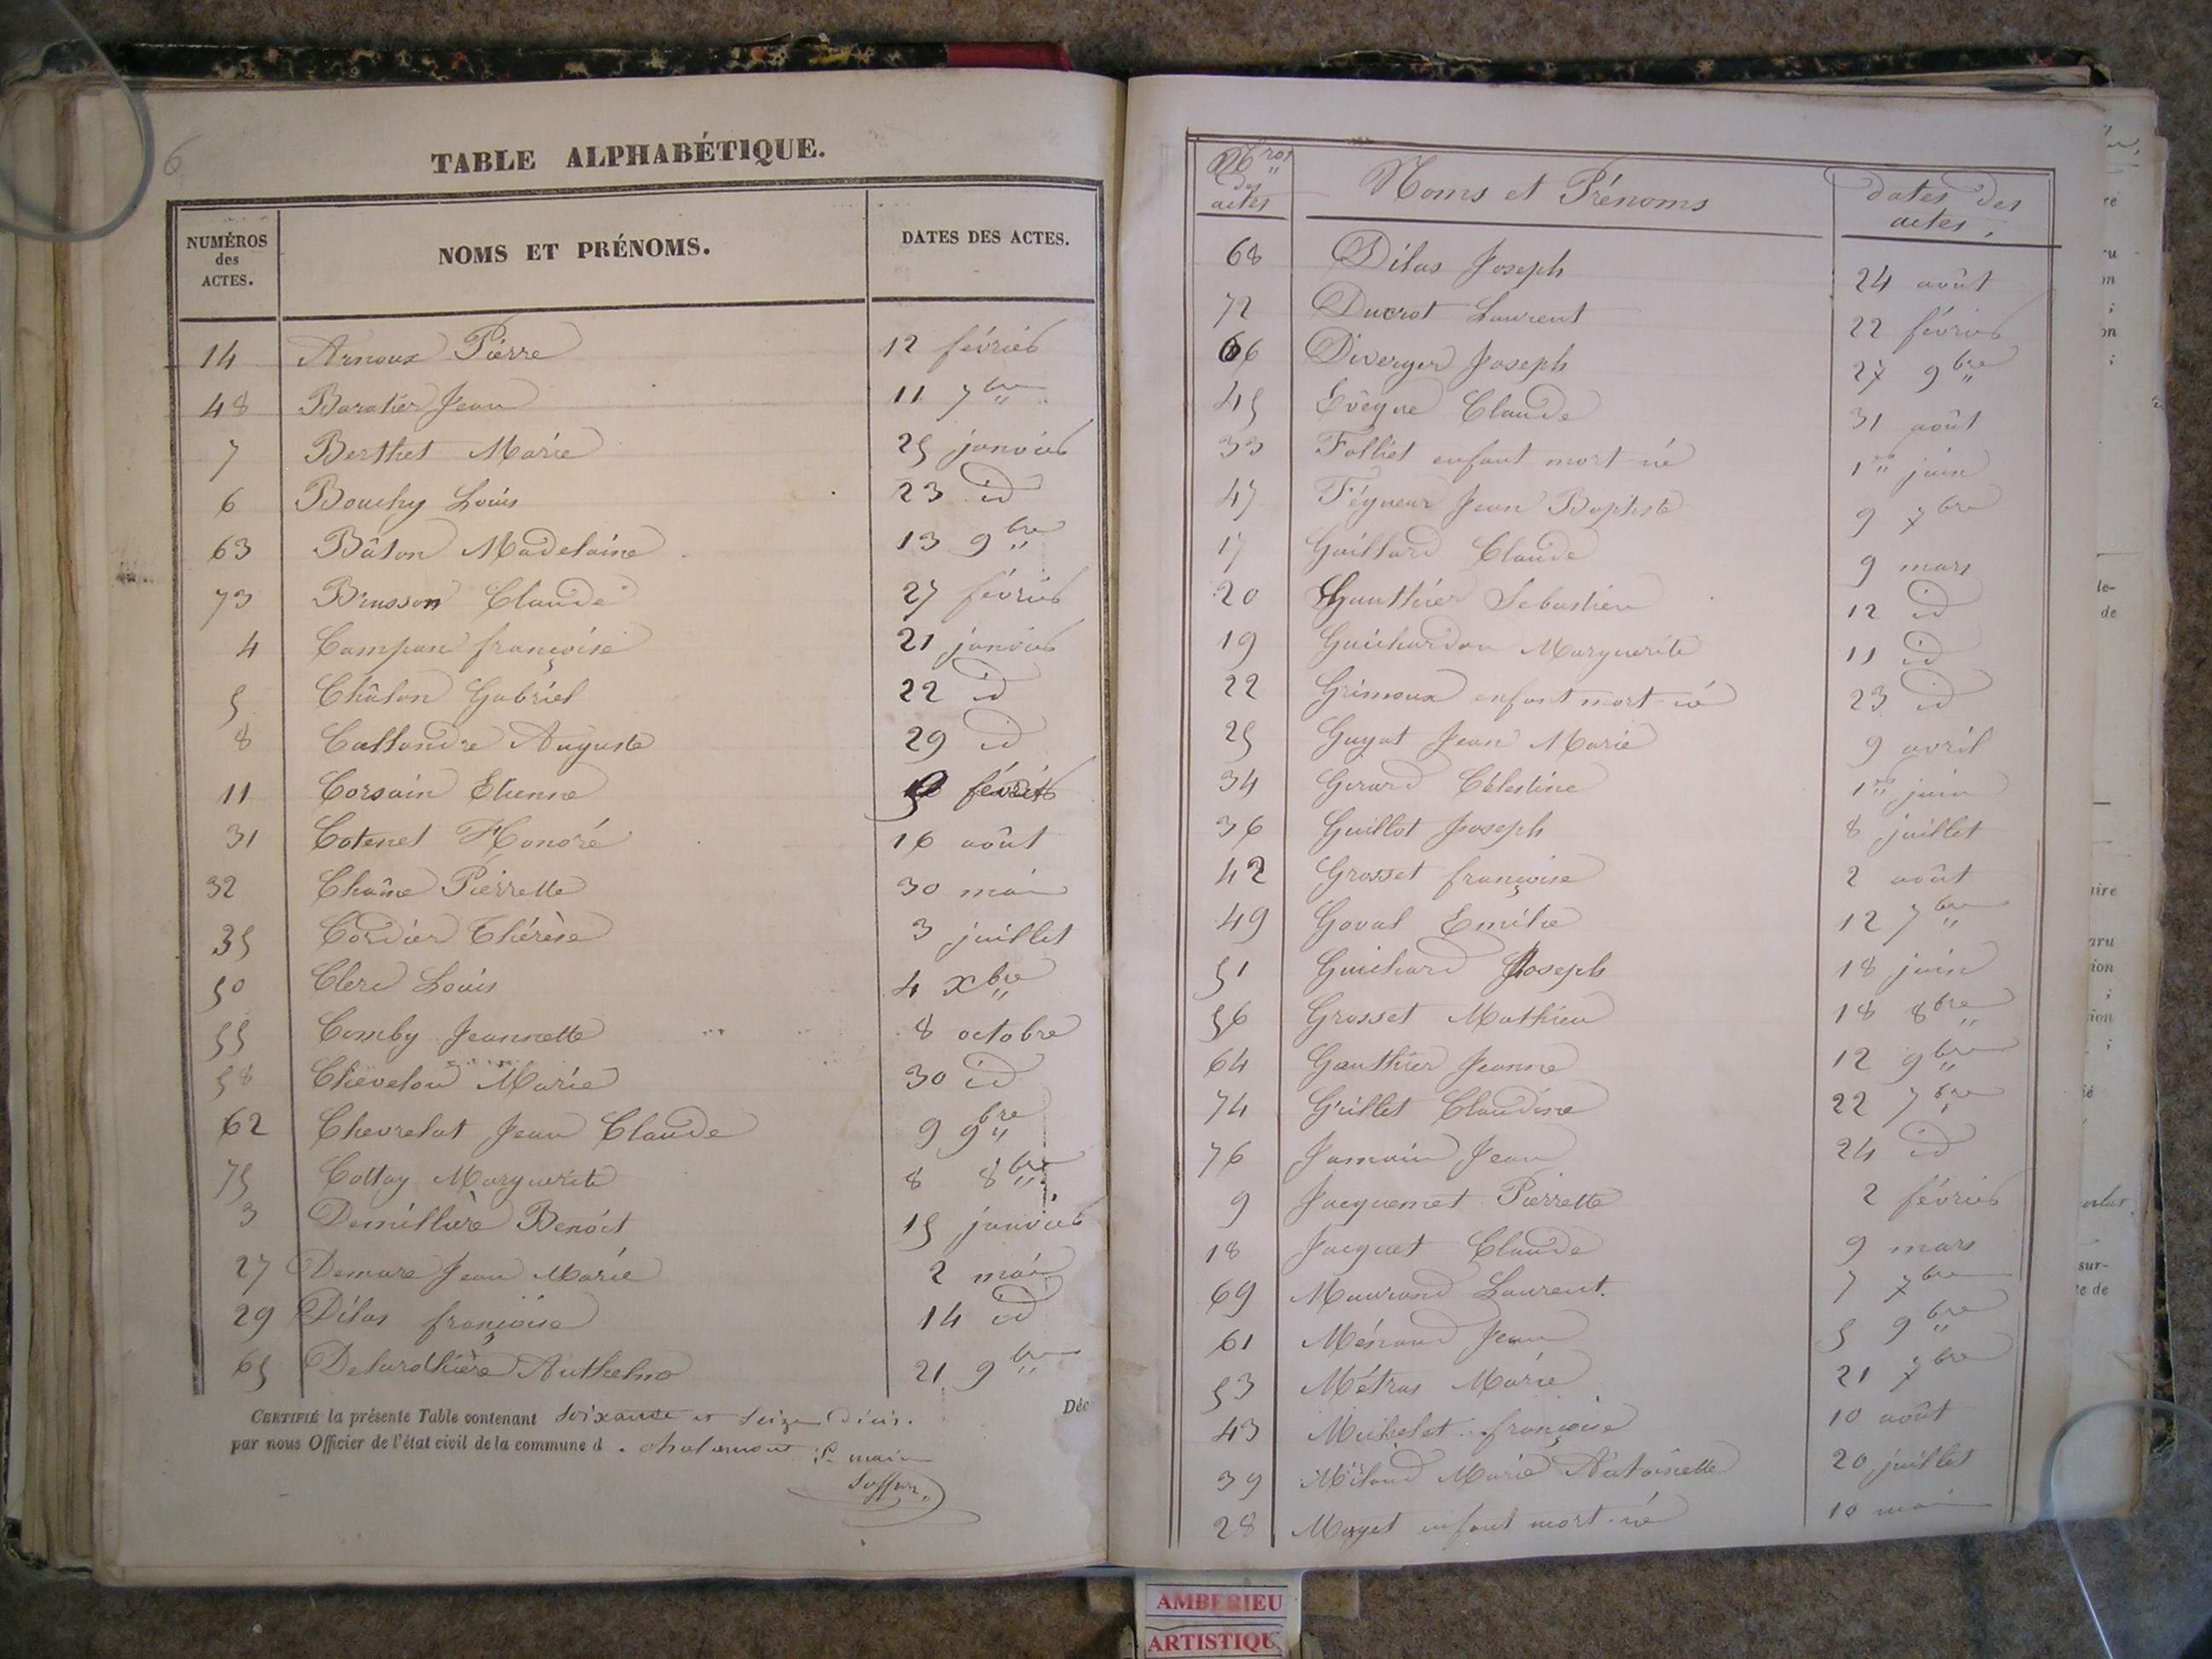 6
TABLE ALPHABÉTIQUE.
NUMÉROS des ACTES. NOMS ET PRÉNOMS. DATES DES ACTES.
14 Arnoux Pierre 12 février
48 Baratier Jean 11 7bre
7 Berthet Marie 25 janvier
6 Bouchy Louis 23 id
63 Bâton Madelaine 13 9bre
73 Brusson Claude 27 février
4 Campan françoise 21 janvier
5 Châlon Gabriel 22 id
8 Callandre Auguste 29 id
11 Corsain Etienne février
31 Cotenet Honoré 16 août
32 Chaîne Pierrette 30 mai
35 Cordier Thérèse 3 juillet
50 Clerc Louis 4 Xbre
55 Comby Jeannette 8 octobre
58 Chevelou Marie 30 id
62 Chevrelat Jean Claude 9 9bre
75 Collay Marguerite 8 8bre
3 Demillière Benoit 15 janvier
27 Demare Jean Marie 2 mai
29 Dilas françoise 14 id
65 Delarothière Anthelme 21 9bre
CERTIFIÉ la présente Table contenant soixante et seize Décès.
par nous Officier de l'état civil de la commune d chalamont
Le maire
Déc
Nros des actes Noms et Prénoms dates des actes,
68 Dilas Joseph 24 août
72 Ducrot Laurent 22 février
66 Diverger Joseph 27 9bre
45 Evêque Claude 31 août
33 Folliet enfant mort-né 1er juin
47 Féqueur Jean Baptiste 9 7bre
17 Gaillard Claude 9 mars
20 Gauthier Sébastien 12 id
19 Guichardon Marguerite 11 id
22 Grimoux enfant mort-né 23 id
25 Guyat Jean Marie 9 avril
34 Girard Célestine 1er juin
36 Guillot Joseph 8 juillet
42 Grosset françoise 2 août
49 Goval Emélie 12 7bre
51 Guichard Joseph 18 juin
56 Grosset Mathieu 18 8bre
64 Gauthier Jeanne 12 9bre
74 Grillet Claudine 22 7bre
76 Jamain Jean 24 id
9 Jacquemet Pierrette 2 février
18 Jacquet Claude 9 mars
69 Maurand Laurent. 7 7bre
61 Ménand Jean 5 9bre
53 Métras Marie 21 7bre
43 Michelet françoise 10 août
39 Miland Marie Antoinette 20 juillet
28 Mayet enfant mort-né 10 mai
AMBERIEU
ARTISTIQU